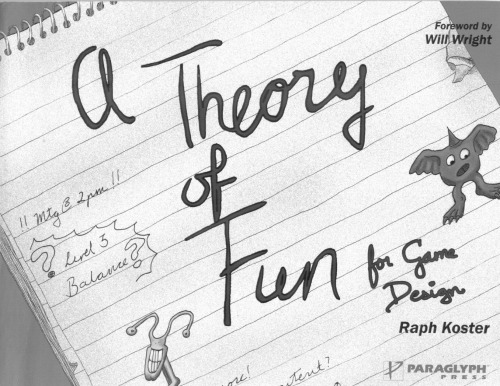 Foreword by
Will Wright
A Theory
of
Fun
for Game
Design
!! Mtg @ 2pm !!
? Level 3
Balance?
Raph Koster
PARAGLYPH
PRESS